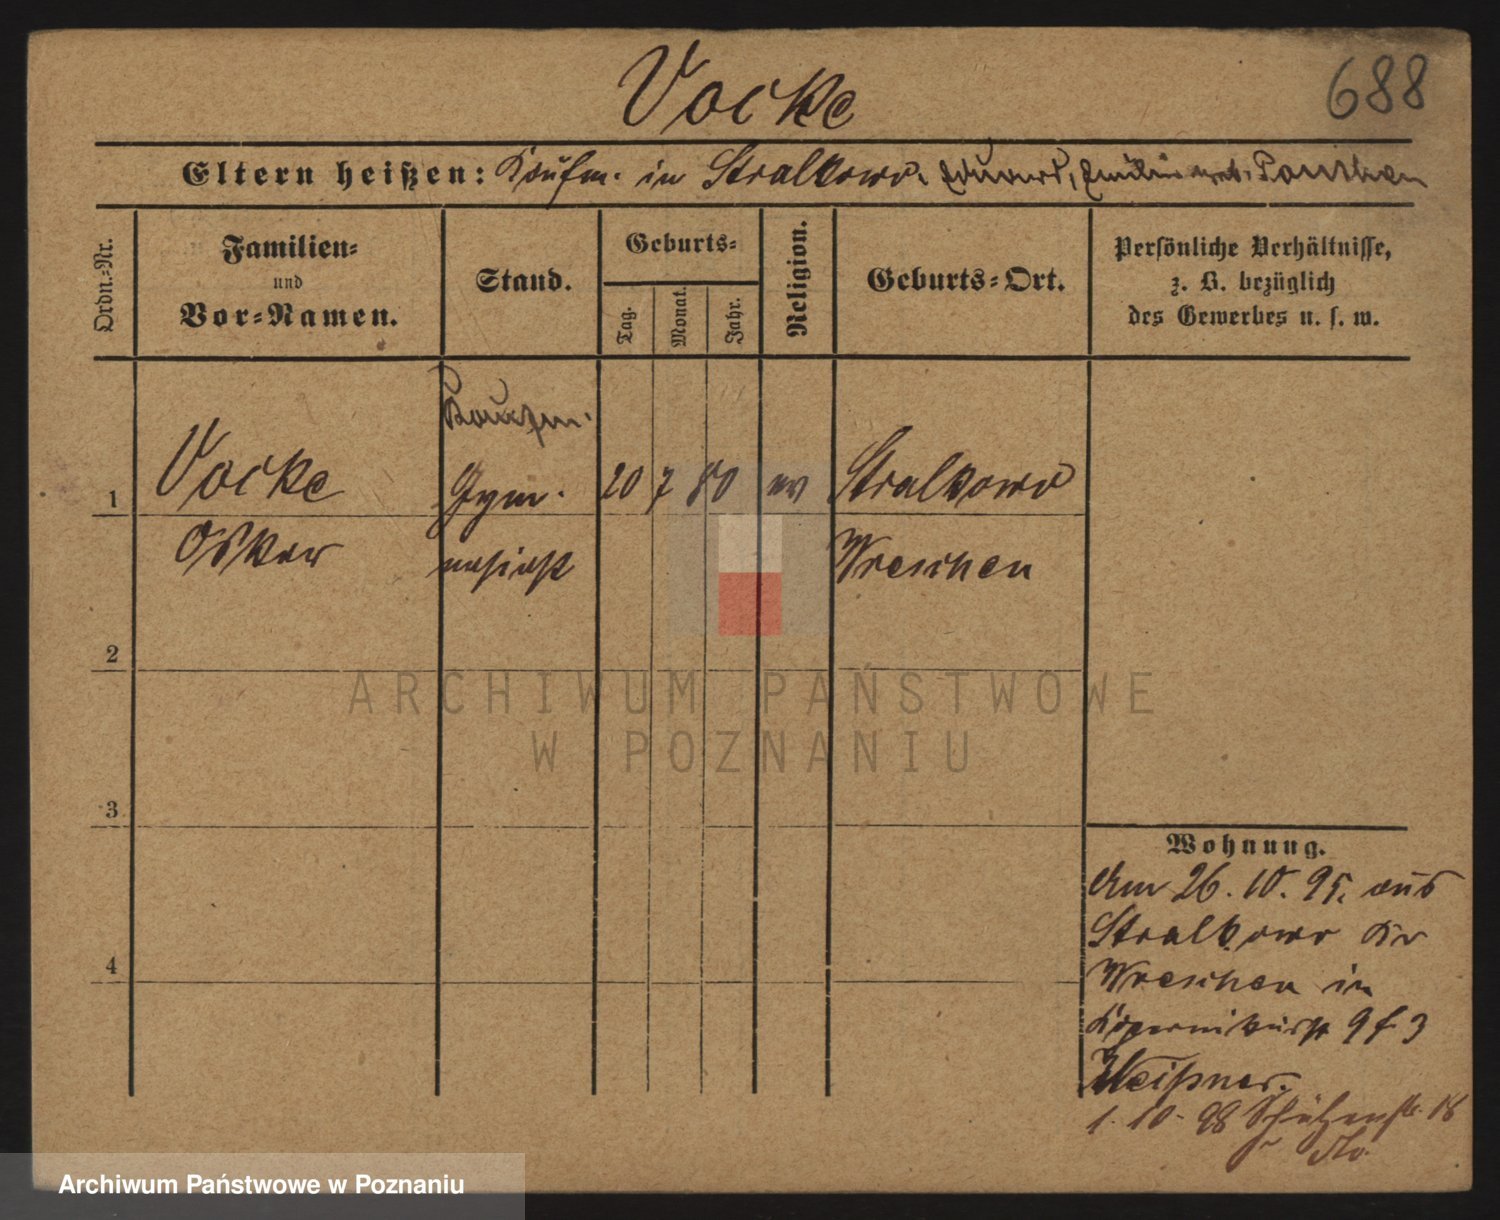 Vocke
688
Eltern heißen: Kaufm. in Stralkowo. Eduard, Emilie geb.
Ordn.-Nr.
Familien-
und
Vor-Namen.
Stand.
Geburts-
Tag.
Monat.
Jahr.
Religion.
Geburts-Ort.
Persönliche Verhältnisse,
z. B. bezüglich
des Gewerbes u. s. w.
Kaufm.
1 Vocke Gym- 20 7 80 ev Stralkowo
Oskar nasiast Wreschen
2
ARCHIWUM PAŃSTWOWE
W POZNANIU
3
4
Wohnung.
Am 26. 10. 95. aus
Stralkowo Kr
Wreschen in
9 f 3
Meißner.
1. 10. 98 Schützenstr. 18
Archiwum Państwowe w Poznaniu